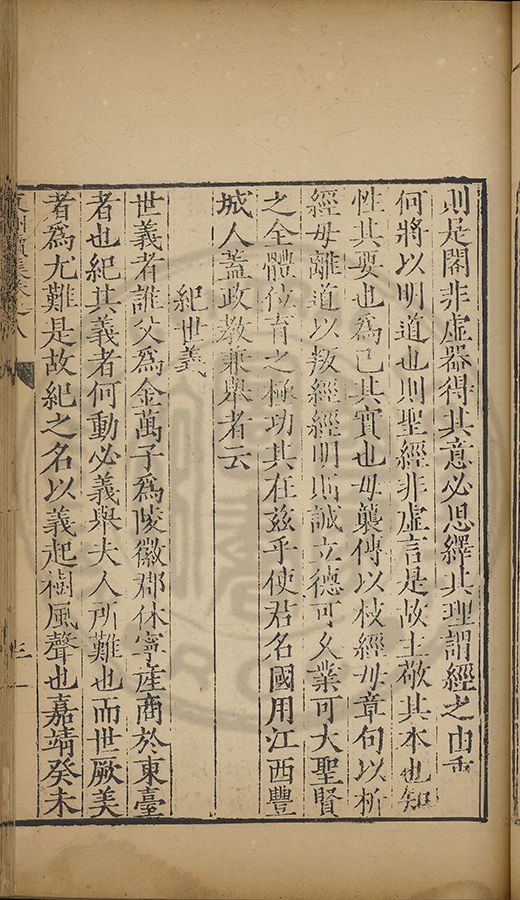 則是閣非虛器得其意必思繹其理謂經之由
何將以明道也則聖經非虛言是故主敬其本也知
性其要也為已其實也毋襲傳以枝經毋章句以析
經毋離道以叛經經明則誠立德可久業可大聖賢
之全體位育之極功其在茲乎使君名國用江西豐
城人蓋政教兼舉者云
紀世義
世義者誰父為金萬子為陵徽郡休寧產商於東臺
者也紀其義者何動必義舉夫人所難也而世厥美
者為尤難是故紀之名以義起樹風聲也嘉靖癸未
卷之八
三